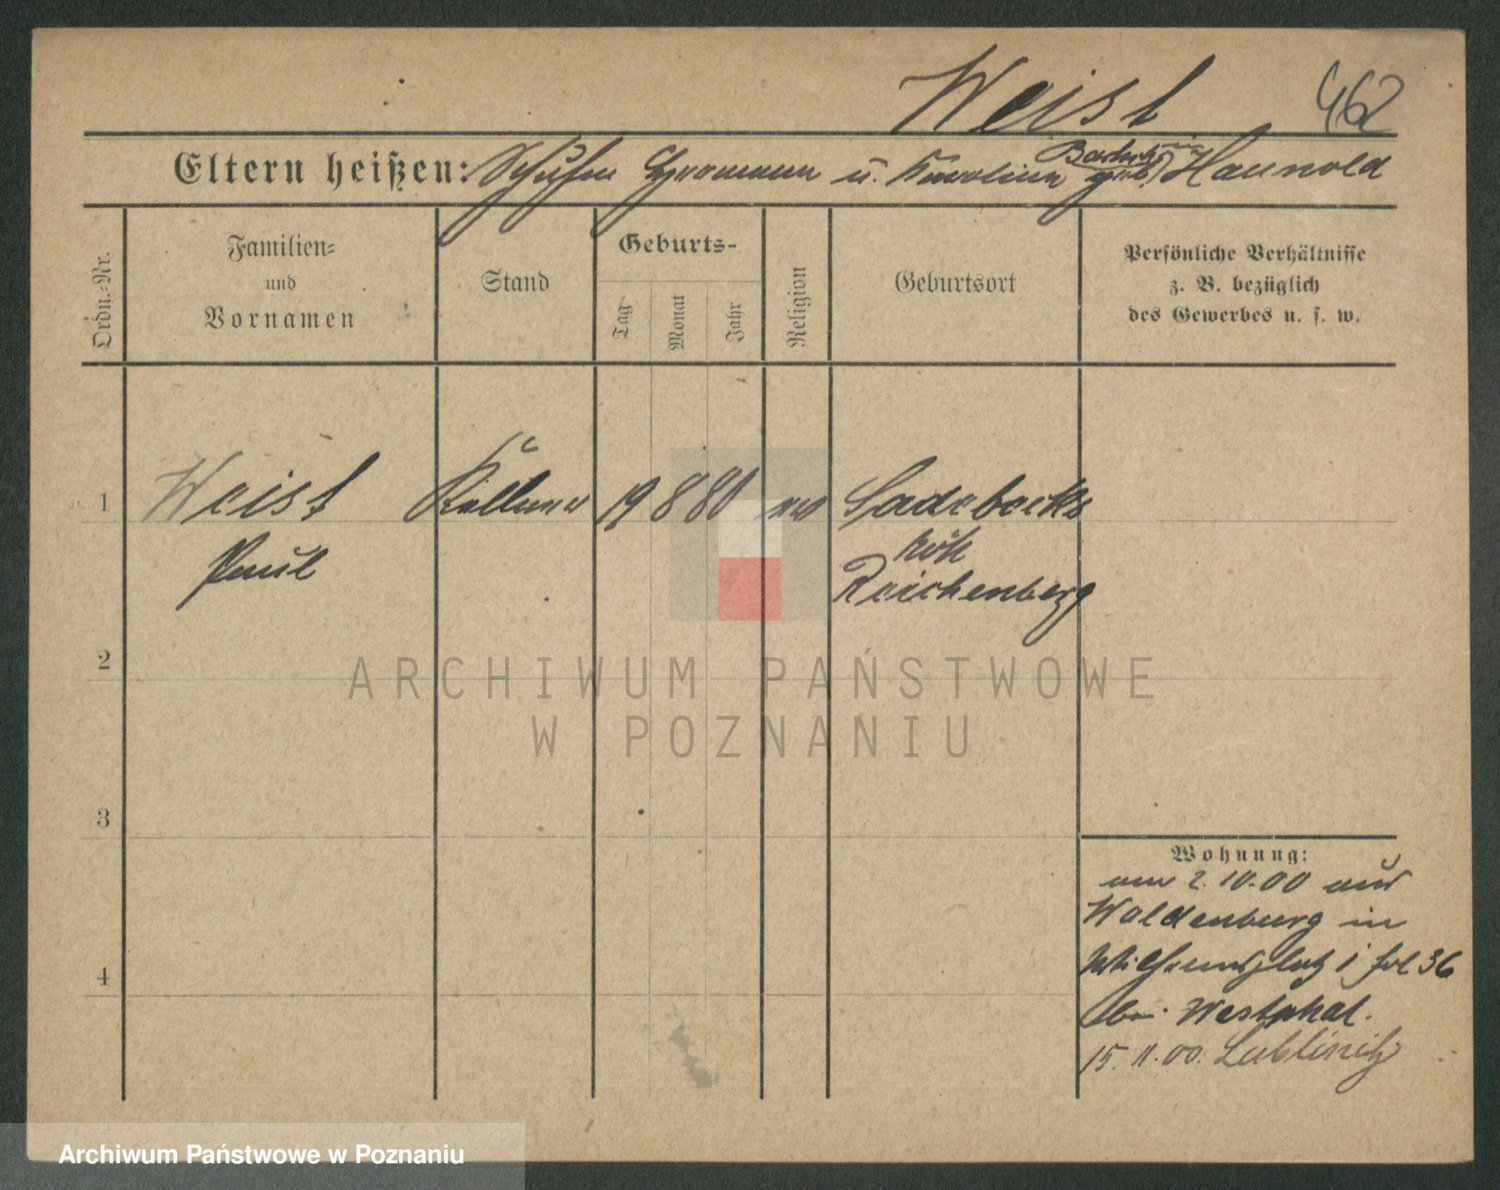 Weist 462
Eltern heißen: Hermann u. Karolina geb. Haunold
Ordn.-Nr.
Familien-
und
Vornamen
Stand
Geburts-
Tag
Monat
Jahr
Religion
Geburtsort
Persönliche Verhältnisse
z. B. bezüglich
des Gewerbes u. s. w.
1 Weist Kellner 19 8 80 ev Sadebecks
Paul höh
Reichenberg
2
3
4
Wohnung:
am 2.10.00 aus
Waldenburg in
Wilhelmsplatz 1 fol 36
bei Westphal.
15.11.00. Lublinitz
ARCHIWUM PAŃSTWOWE
W POZNANIU
Archiwum Państwowe w Poznaniu